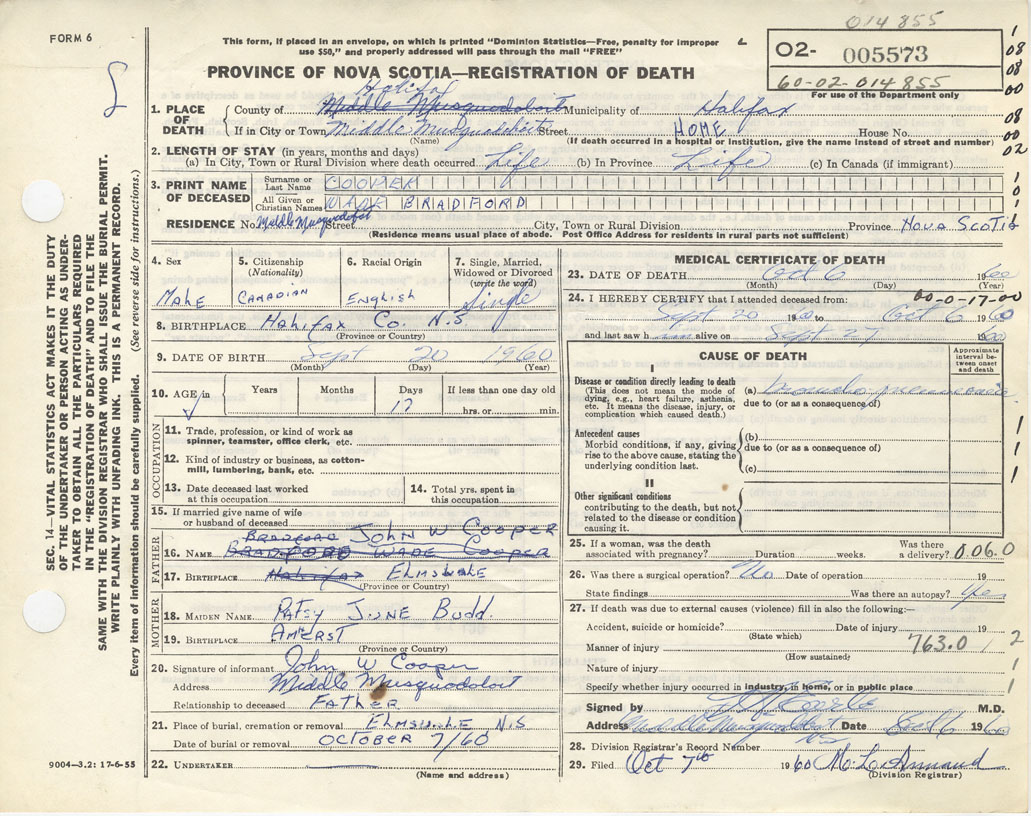 014855
FORM 6
This form, if placed in an envelope, on which is printed "Dominion Statistics—Free, penalty for improper
use $50," and properly addressed will pass through the mail "FREE"
02- 005573
60-02-014855
For use of the Department only
PROVINCE OF NOVA SCOTIA—REGISTRATION OF DEATH
1. PLACE OF DEATH
Halifax
County of Middle Musquodoboit Municipality of Halifax
If in City or Town Middle Musquodoboit Street HOME House No.
(Name) (If death occurred in a hospital or institution, give the name instead of street and number)
2. LENGTH OF STAY (in years, months and days)
(a) In City, Town or Rural Division where death occurred Life (b) In Province Life (c) In Canada (if immigrant)
3. PRINT NAME OF DECEASED
Surname or Last Name COOPER
All Given or Christian Names WADE BRADFORD
RESIDENCE No. Middle Musquodoboit Street City, Town or Rural Division Province NOVA SCOTIA
(Residence means usual place of abode. Post Office Address for residents in rural parts not sufficient)
4. Sex
MALE
5. Citizenship
(Nationality)
CANADIAN
6. Racial Origin
ENGLISH
7. Single, Married,
Widowed or Divorced
(write the word)
Single
8. BIRTHPLACE HALIFAX Co. N.S
(Province or Country)
9. DATE OF BIRTH Sept 20 1960
(Month) (Day) (Year)
10. AGE in
Years Months Days If less than one day old
17 hrs. or min.
OCCUPATION
11. Trade, profession, or kind of work as
spinner, teamster, office clerk, etc.
12. Kind of industry or business, as cotton-
mill, lumbering, bank, etc.
13. Date deceased last worked
at this occupation
14. Total yrs. spent in
this occupation
15. If married give name of wife
or husband of deceased
FATHER
BRADFORD JOHN W COOPER
16. NAME BRADFORD WADE COOPER
17. BIRTHPLACE Halifax ELMSVALE
(Province or Country)
MOTHER
18. MAIDEN NAME PATSY JUNE BUDD.
19. BIRTHPLACE AMHERST
(Province or Country)
20. Signature of informant John W Cooper
Address Middle Musquodoboit
Relationship to deceased FATHER
21. Place of burial, cremation or removal ELMSVALE N.S
Date of burial or removal OCTOBER 7/60
22. UNDERTAKER
(Name and address)
MEDICAL CERTIFICATE OF DEATH
23. DATE OF DEATH Oct 6 1960
(Month) (Day) (Year)
24. I HEREBY CERTIFY that I attended deceased from: 00-0-17-00
Sept 20 1960 to Oct 6 1960
and last saw him alive on Sept 27 1960
CAUSE OF DEATH
Approximate
interval be-
tween onset
and death
I
Disease or condition directly leading to death
(This does not mean the mode of
dying, e.g., heart failure, asthenia,
etc. It means the disease, injury, or
complication which caused death.)
(a) Broncho pneumonia
due to (or as a consequence of)
Antecedent causes
Morbid conditions, if any, giving
rise to the above cause, stating the
underlying condition last.
(b)
due to (or as a consequence of)
(c)
II
Other significant conditions
contributing to the death, but not
related to the disease or condition
causing it.
25. If a woman, was the death
associated with pregnancy? Duration weeks. Was there
a delivery? 0.06.0
26. Was there a surgical operation? No Date of operation 19
State findings Was there an autopsy? Yes
27. If death was due to external causes (violence) fill in also the following:—
Accident, suicide or homicide? Date of injury 19
(State which)
Manner of injury 763.0 / 2
(How sustained)
Nature of injury
Specify whether injury occurred in industry, in home, or in public place
Signed by M.D.
Address Middle Musquodoboit NS Date Oct 6 1960
28. Division Registrar's Record Number
29. Filed Oct 7th 1960
(Division Registrar)
SEC. 14—VITAL STATISTICS ACT MAKES IT THE DUTY
OF THE UNDERTAKER OR PERSON ACTING AS UNDER-
TAKER TO OBTAIN ALL THE PARTICULARS REQUIRED
IN THE "REGISTRATION OF DEATH" AND TO FILE THE
SAME WITH THE DIVISION REGISTRAR WHO SHALL ISSUE THE BURIAL PERMIT.
WRITE PLAINLY WITH UNFADING INK. THIS IS A PERMANENT RECORD.
Every item of information should be carefully supplied. (See reverse side for instructions.)
9004—3.2: 17-6-55
1
08
08
00
08
00
02
1
0
1
1
1
1
1
1